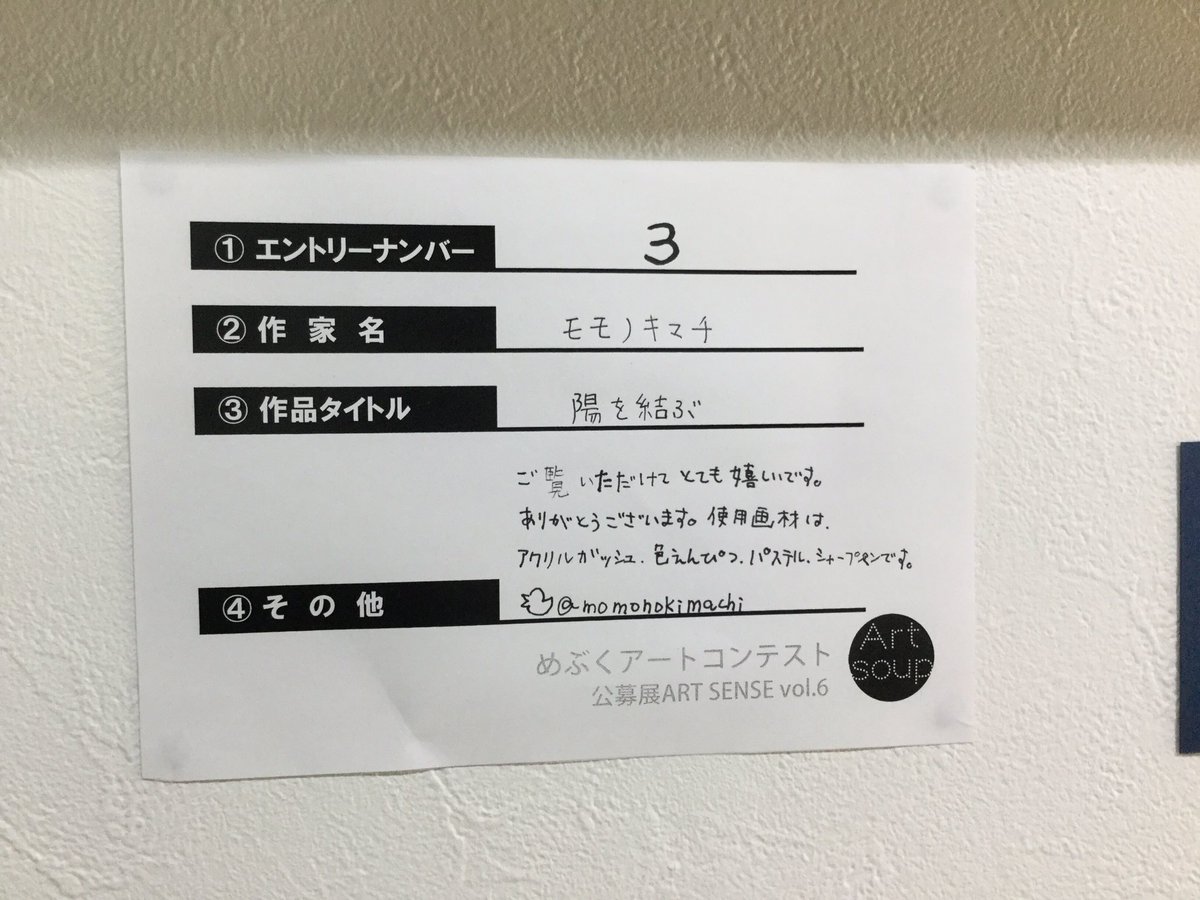 ① エントリーナンバー 3
② 作家名 モモノキマチ
③ 作品タイトル 陽を結ぶ
ご覧いただけてとても嬉しいです。
ありがとうございます。使用画材は、
アクリルガッシュ、色えんぴつ、パステル、シャープペンです。
④ その他 @momonokimachi
めぶくアートコンテスト
公募展ART SENSE vol.6
Art
soup